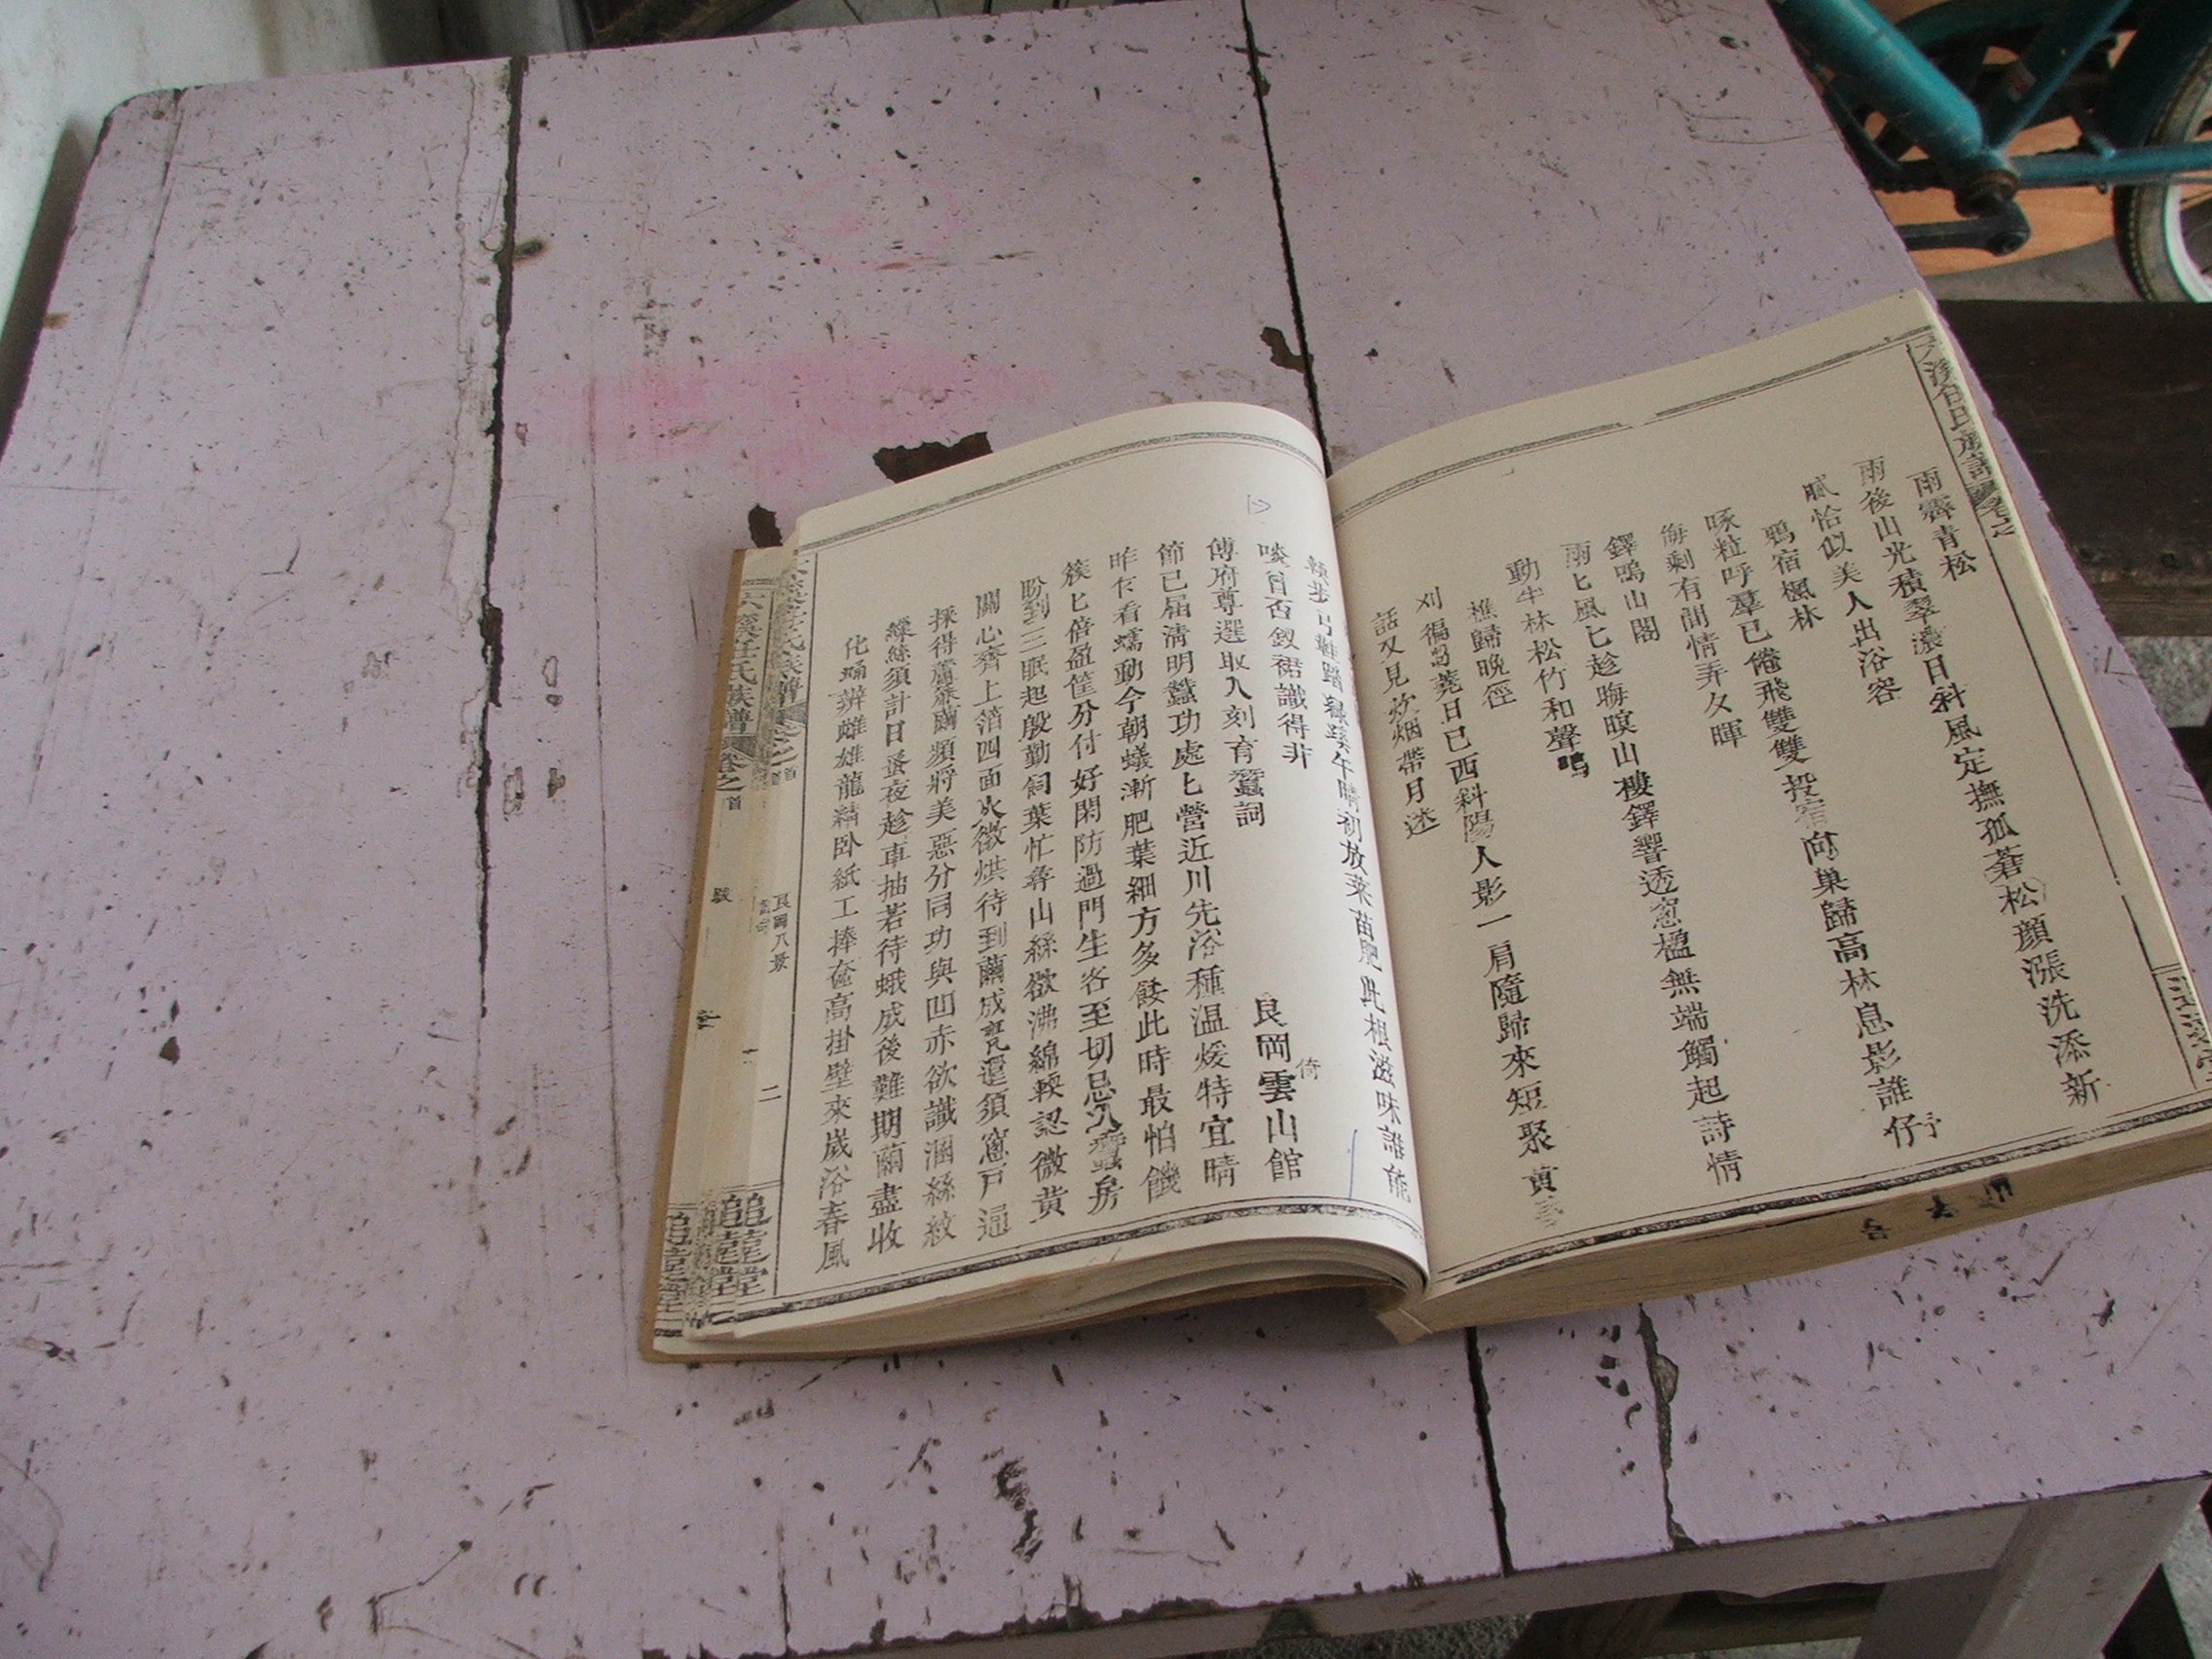 氏族譜
雨霽青松
雨後山光積翠濃日斜風定撫孤蒼松顏漲洗添新
膩恰似美人出浴容
鴉宿楓林
啄粒呼羣已倦飛雙雙投宿向巢歸高林息影誰仔
每剩有閒情弄夕暉
鐸鳴山閣
雨匕風匕趁晦暝山樓鐸響透窓櫺無端觸起詩情
動半林松竹和聲鳴
樵歸晚徑
刈得芻蕘日已西斜陽人影一肩隨歸來短聚
話又見炊烟帶月迷
踏綠蹊午晴初放菜苗肥此根滋味誰能
啖自西釵裙識得非
傅府尊選取入刻育蠶詞
良岡雲山館
倚
節已屆清明蠶功處匕營近川先浴種温煖特宜晴
昨仺看蠕動今朝蟻漸肥葉細方多餧此時最怕饑
簇匕倍盈筐分付好閑防過門生客至切忌入蠶房
盼到三眠起慇勤飼葉忙尋山絲欲沸綿輭認微黄
關心齊上箔四面火微烘待到繭成甕還須窓戸通
採得蘆簾繭頻將美惡分同功與凹赤欲識溷絲紋
繰絲須計日蚤夜趁車抽若待蛾成後難期繭盡收
化蛹辨雌雄龍精卧紙工捧奩高掛壁來歲浴春風
良岡八景
二
任氏族譜
卷之首